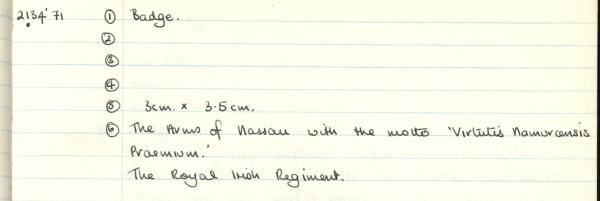 2134'71 ① Badge.
②
③
④
⑤ 3cm. x 3.5cm.
⑥ The Arms of Nassau with the motto 'Virtutis Namurcensis
Praemium.'
The Royal Irish Regiment.